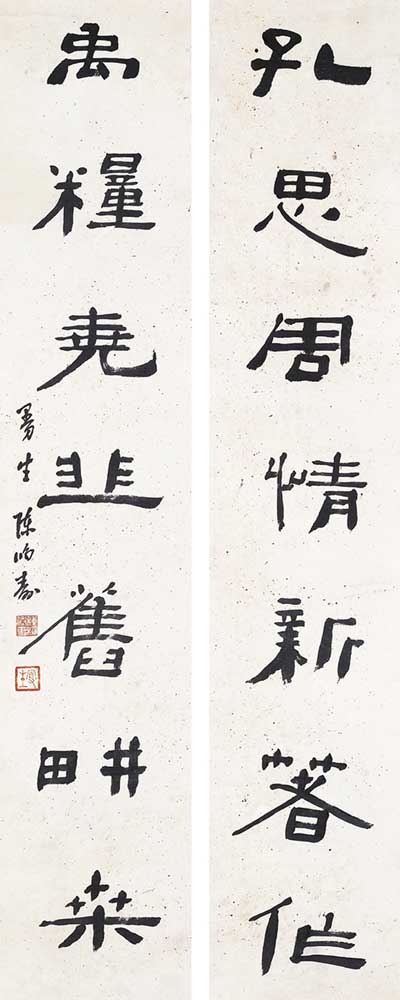 孔思周情新著作
禹糧堯韭舊畊桒
曼生陳鴻壽